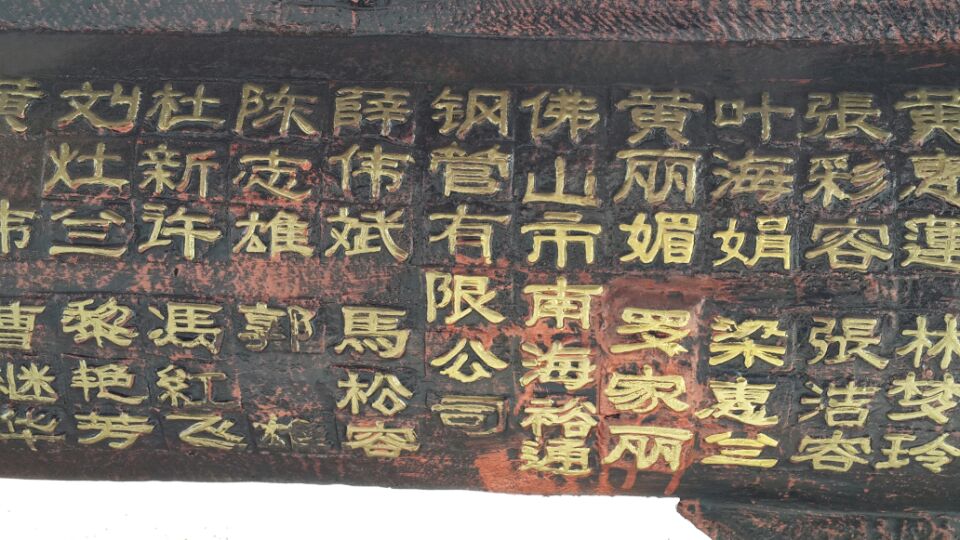 黄惠蓮 林梦玲
張彩容 張洁容
叶海娟 梁惠兰
黄丽媚 罗家丽
佛山市南海裕通
钢管有限公司
薛伟斌 馬松容
陈志雄 郭
杜新许 馮紅飞
刘灶兰 黎艳芳
黄 曹继华